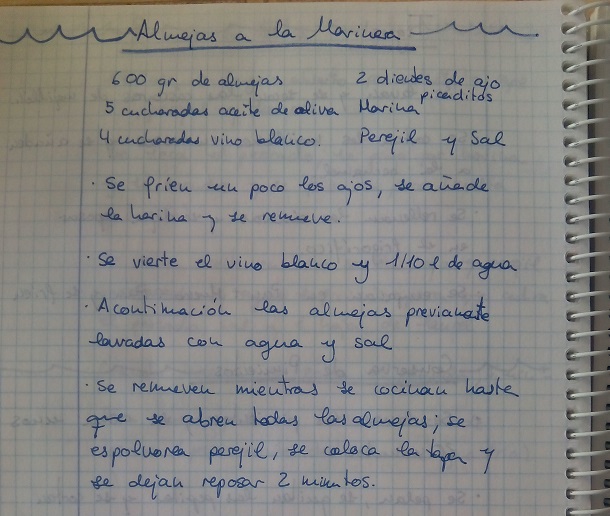 Almejas a la Marinera
600 gr de almejas 2 dientes de ajo
picaditos
5 cucharadas aceite de oliva Harina
4 cucharadas vino blanco. Perejil y Sal
· Se frien un poco los ajos, se añade
la harina y se remueve.
· Se vierte el vino blanco y 1/10 l de agua
· Acontinuación las almejas previamente
lavadas con agua y sal
· Se remueven mientras se cocinan hasta
que se abren todas las almejas; se
espolvorea perejil, se coloca la tapa y
se dejan reposar 2 minutos.